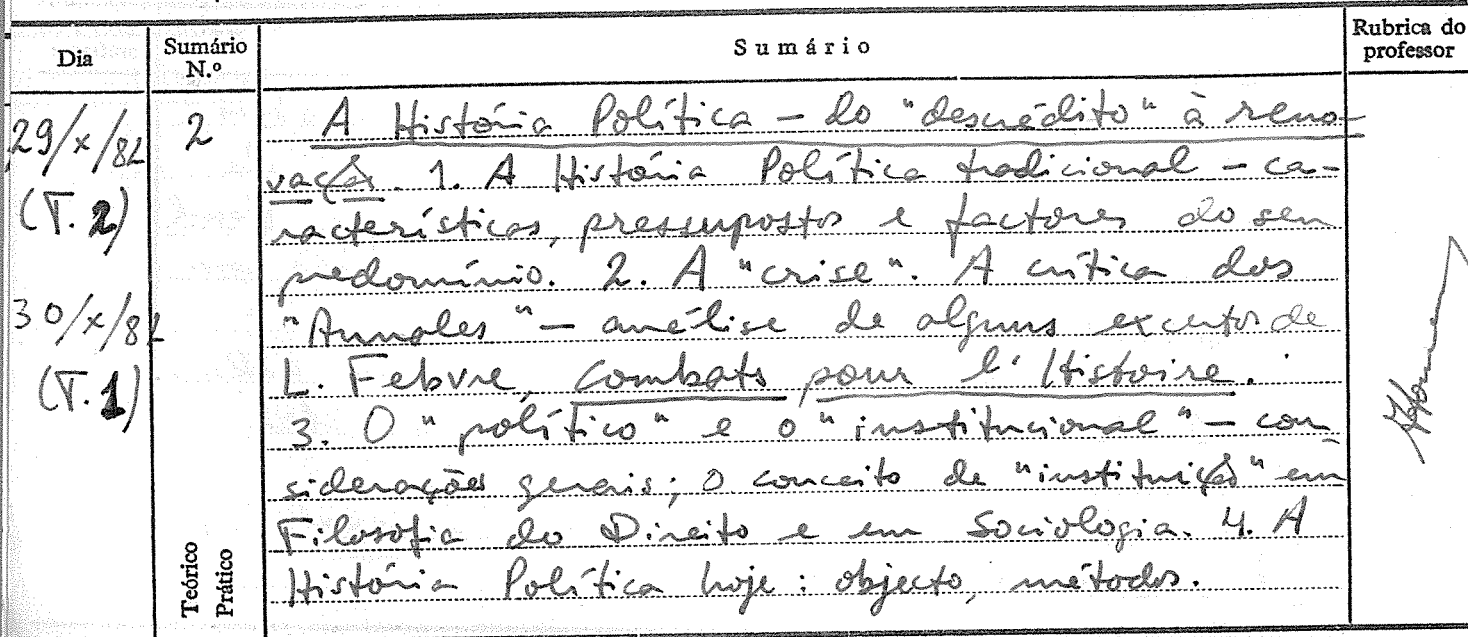 Dia
Sumário N.º
Sumário
Rubrica do professor
29/X/82
(T. 2)
30/X/82
(T. 1)
2
Teórico
Prático
A História Política - do "descrédito" à reno-
vação. 1. A História Política tradicional - ca-
racterísticas, pressupostos e factores do seu
predomínio. 2. A "crise". A crítica dos
"Annales" - análise de alguns excertos de
L. Febvre, Combats pour l'Histoire.
3. O "político" e o "institucional" - con-
siderações gerais; o conceito de "instituição" em
Filosofia do Direito e em Sociologia. 4. A
História Política hoje: objecto, métodos.